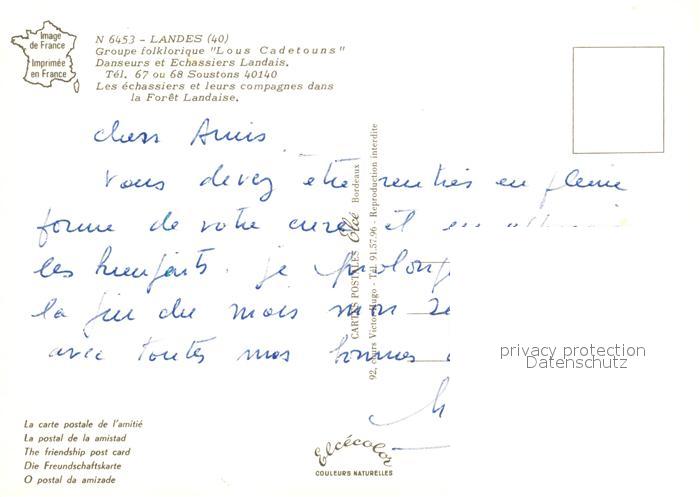 Image
de France
Imprimée
en France
N 6453 - LANDES (40)
Groupe folklorique "Lous Cadetouns"
Danseurs et Echassiers Landais.
Tél. 67 ou 68 Soustons 40140
Les échassiers et leurs compagnes dans
la Forêt Landaise.
chers Amis
Vous devez être rentrés en pleine
forme de votre cure et en
les bienfaits. je
la fin du mois mon
avec toutes mes bonnes
CARTES POSTALES Elcé Bordeaux
92, cours Victor-Hugo - Tél. 91.57.96 - Reproduction interdite
privacy protection
Datenschutz
La carte postale de l'amitié
La postal de la amistad
The friendship post card
Die Freundschaftskarte
O postal da amizade
Elcécolor
COULEURS NATURELLES